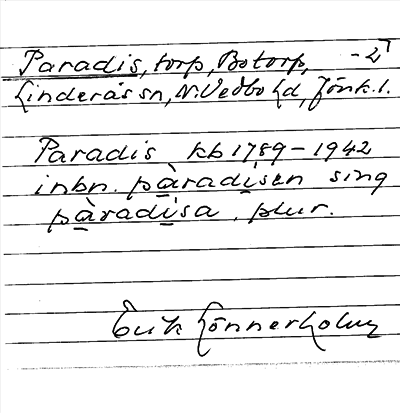 Paradis, torp, Botorp, -27
Linderås sn, N. Vedbo hd, Jönk. l.
Paradis kb 1789-1942
inbn. pàradisen sing
pàradisa, plur.
Erik Lönnerholm